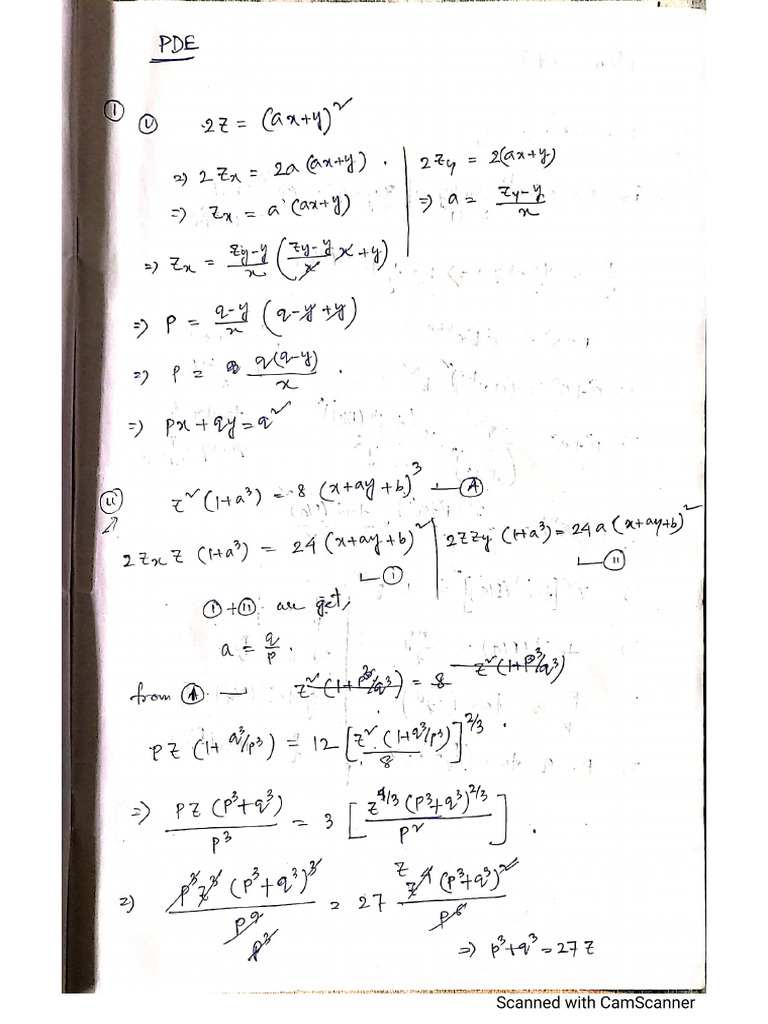 PDE
① ⓘ 2z = (ax+y)²
⇒ 2zₓ = 2a (ax+y) . | 2z_y = 2(ax+y)
⇒ zₓ = a (ax+y) | ⇒ a = (z_y-y)/x
⇒ zₓ = (z_y-y)/x ((z_y-y)/x x + y)
⇒ p = (q-y)/x (q-y+y)
⇒ p = q(q-y)/x .
⇒ px + qy = q²
ⓘⓘ z² (1+a³) = 8 (x+ay+b)³ — Ⓐ
2zₓ z (1+a³) = 24 (x+ay+b)² — ⓘ | 2zz_y (1+a³) = 24a (x+ay+b)² — ⓘⓘ
ⓘ ÷ ⓘⓘ we get,
a = q/p .
from Ⓐ — z² (1+p³/q³) = 8 z² (1+p³/q³)
pz (1+ q³/p³) = 12 [z² (1+q³/p³)/8]^(2/3) .
⇒ pz (p³+q³)/p³ = 3 [z^(4/3) (p³+q³)^(2/3)/p²] .
⇒ p³z³ (p³+q³)³/p⁹ p³ = 27 z z⁴ (p³+q³)²/p⁶
⇒ p³+q³ = 27z
Scanned with CamScanner